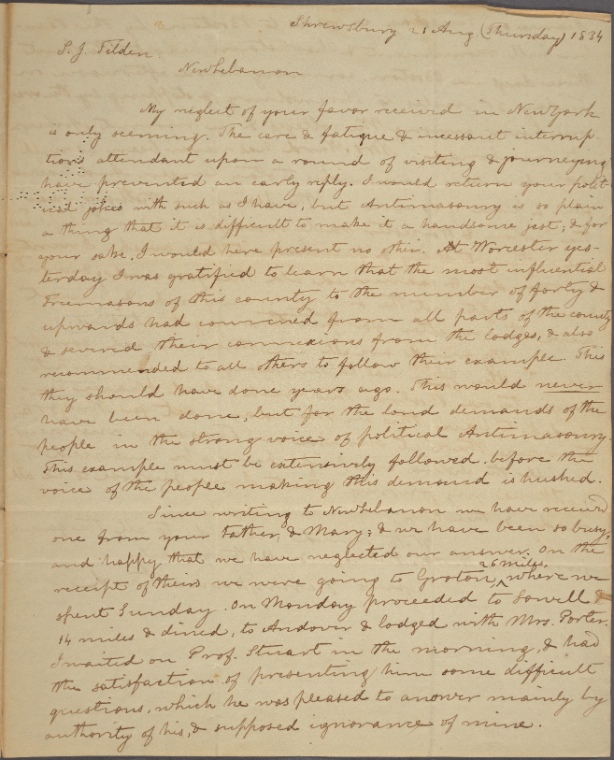 Shrewsbury 21 Aug (Thursday) 1834
S. J. Tilden.
New Lebanon
My neglect of your favor received in New York
is only seeming. The care & fatigue & incessant interrup-
tions attendant upon a round of visiting & journeying
have prevented an early reply. I would return your polit-
ical jokes with such as I have, but Antimasonry is so plain
a thing that it is difficult to make it a handsome jest; & for
your sake, I would here present no other. At Worcester yes-
terday I was gratified to learn that the most influential
Freemasons of this county to the number of forty &
upwards had convened from all parts of the county
& severed their connexions from the lodges, & also
recommended to all others to follow their example. This
they should have done years ago. This would never
have been done, but for the loud demands of the
people in the strong voice of political Antimasonry.
This example must be extensively followed, before the
voice of the people making this demand is hushed.
Since writing to New Lebanon we have received
one from your Father & Mary; & we have been so busy,
and happy that we have neglected our answer. On the
receipt of theirs we were going to Groton 26 miles, where we
spent Sunday. On Monday proceeded to Lowell &
14 miles & dined, to Andover & lodged with Mrs. Porter.
I waited on Prof. Stuart in the morning, & had
the satisfaction of presenting him some difficult
questions, which he was pleased to answer mainly by
authority of his, & supposed ignorance of mine.